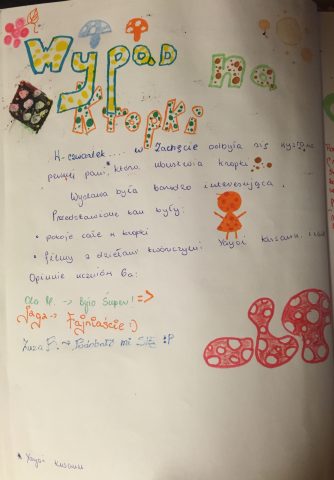 Wypad na
kropki
W czwartek .... w Zachęcie odbyła się
pewnej pani, która uwielbia kropki
Wystawa była bardzo interesująca.
Przedstawione tam były:
• pokoje całe w kropki
• filmy z dziełami twórczymi Yayoi Kusamy.
Opinnie uczniów 6a:
Ola P. -> Było Super! =>
Jaga -> Fajniaście :)
Zuza F. -> Podobało mi SIĘ :P
* Yayoi Kusama